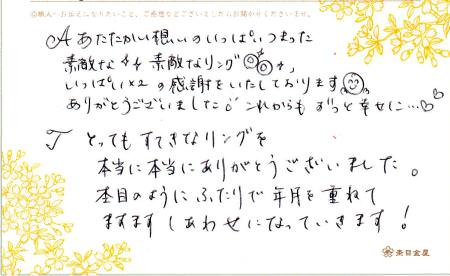 ◎職人へお伝えになりたいこと、ご感想などございましたらお聞かせくださいませ。
A あたたかい想いのいっぱいつまった
素敵な 素敵なリング
いっぱい×2 の感謝をいたしております
ありがとうございました♪ これからも ずっと幸せに…♡♡
T とってもすてきなリングを
本当に本当にありがとうございました。
木目のようにふたりで年月を重ねて
ますます しあわせになっていきます！
杢目金屋